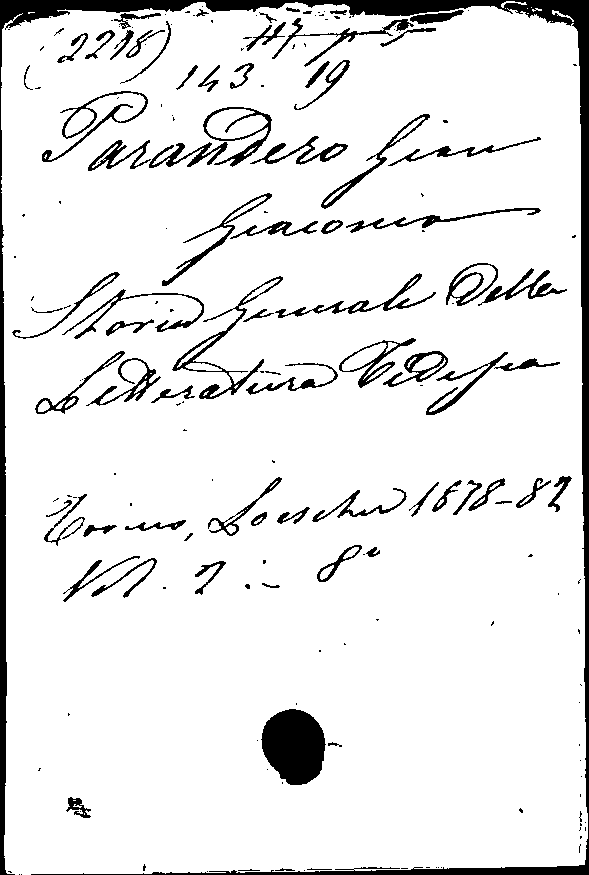 (2218)
143. 19
Parandero Gian
Giacomo
Storia Generale Della
Letteratura Tedesca
Torino, Loescher 1878-82
Vol. 2 :- 8°